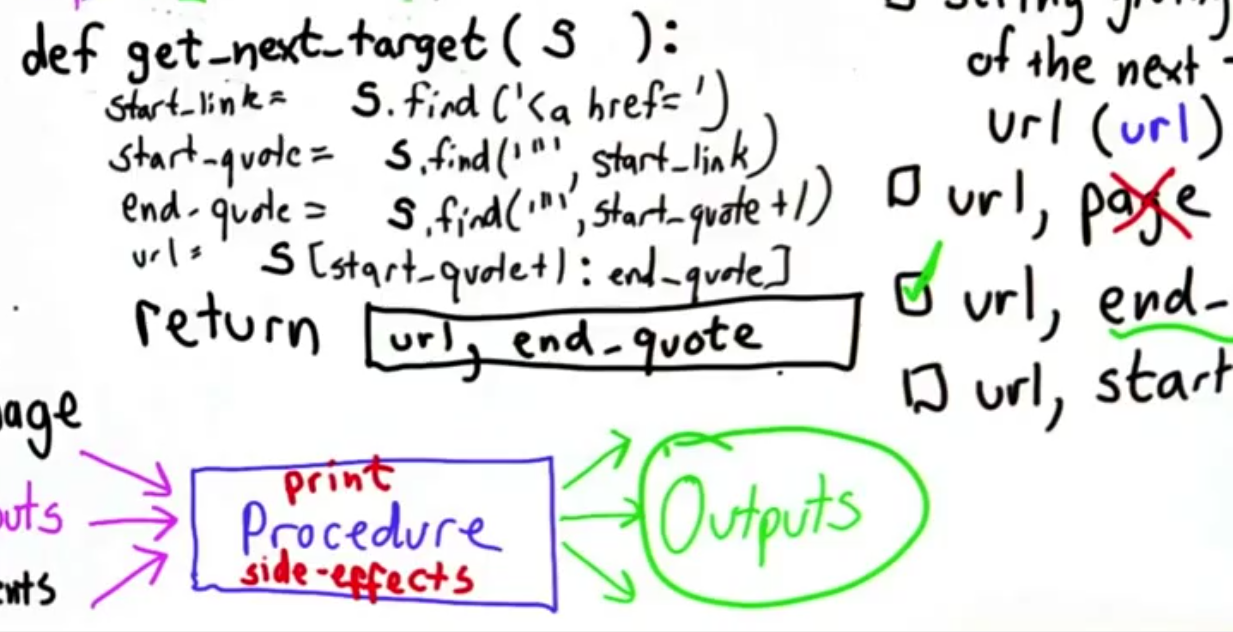 def get_next_target( S ):
start_link= S.find('<a href=')
start_quote= S.find('"', start_link)
end_quote= S.find('"', start_quote+1)
url= S[start_quote+1: end_quote]
return url, end_quote
of the next
url (url)
url, page
url, end_
url, start
age
print
Procedure
side-effects
Outputs